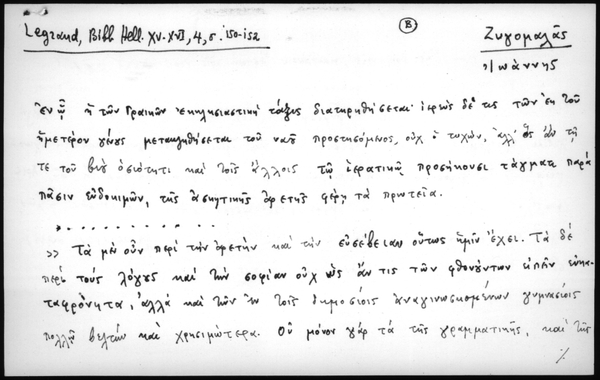 Legrand, Bibl Hell. XV-XVII, 4, σ. 150-152
Β
Ζυγομαλᾶς
Ἰωάννης
ἐν ᾧ ἡ τῶν Γραικῶν ἐκκλησιαστικὴ τάξις διατηρηθήσεται· ἱερεὺς δέ τις τῶν ἐκ τοῦ
ἡμετέρου γένους μετακληθήσεται τοῦ ναοῦ προστησόμενος, οὐχ ὁ τυχών, ἀλλ' ὃς ἂν τῇ
τε τοῦ βίου ὁσιότητι καὶ τοῖς ἄλλοις τῷ ἱερατικῷ προσήκουσι τάγματι παρὰ
πᾶσιν εὐδοκιμῶν, τῆς ἀσκητικῆς ἀρετῆς φέρῃ τὰ πρωτεῖα.
>> Τὰ μὲν οὖν περὶ τὴν ἀρετὴν καὶ τὴν εὐσέβειαν οὕτως ἡμῖν ἔχει. Τὰ δὲ
περὶ τοὺς λόγους καὶ τὴν σοφίαν οὐχ ὡς ἄν τις τῶν φθονούντων εἴποι εὐκα-
ταφρόνητα, ἀλλὰ καὶ τῶν ἐν τοῖς δημοσίοις ἀναγινωσκομένων γυμνασίοις
πολλῷ βελτίω καὶ χρησιμώτερα. Οὐ μόνον γὰρ τὰ τῆς γραμματικῆς, καὶ τῆς
./.